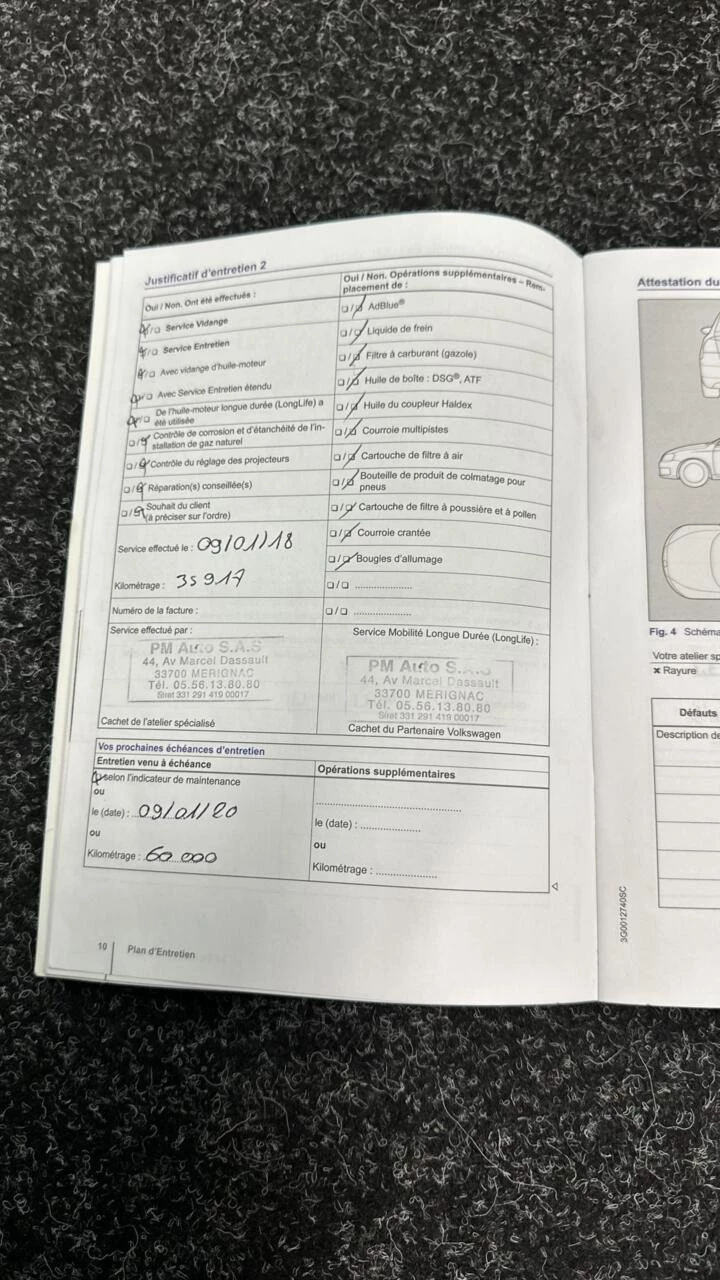 Justificatif d'entretien 2
Oui / Non. Ont été effectués :
Service Vidange
Service Entretien
Avec vidange d'huile-moteur
Avec Service Entretien étendu
De l'huile-moteur longue durée (LongLife) a
été utilisée
Contrôle de corrosion et d'étanchéité de l'in-
stallation de gaz naturel
Contrôle du réglage des projecteurs
Réparation(s) conseillée(s)
Souhait du client
(à préciser sur l'ordre)
Service effectué le : 09/01/18
Kilométrage : 35917
Numéro de la facture :
Oui / Non. Opérations supplémentaires – Rem-
placement de :
AdBlue®
Liquide de frein
Filtre à carburant (gazole)
Huile de boîte : DSG®, ATF
Huile du coupleur Haldex
Courroie multipistes
Cartouche de filtre à air
Bouteille de produit de colmatage pour
pneus
Cartouche de filtre à poussière et à pollen
Courroie crantée
Bougies d'allumage
Service effectué par :
PM Auto S.A.S
44, Av Marcel Dassault
33700 MERIGNAC
Tél. 05.56.13.80.80
Siret 331 291 419 00017
Cachet de l'atelier spécialisé
Service Mobilité Longue Durée (LongLife) :
PM Auto S.A.S
44, Av Marcel Dassault
33700 MERIGNAC
Tél. 05.56.13.80.80
Siret 331 291 419 00017
Cachet du Partenaire Volkswagen
Vos prochaines échéances d'entretien
Entretien venu à échéance
selon l'indicateur de maintenance
ou
le (date) : 09/01/20
ou
Kilométrage : 60 000
Opérations supplémentaires
le (date) :
ou
Kilométrage :
10 Plan d'Entretien
Attestation du
Fig. 4 Schéma
Votre atelier sp
× Rayure
Défauts
Description de
3G0012740SC